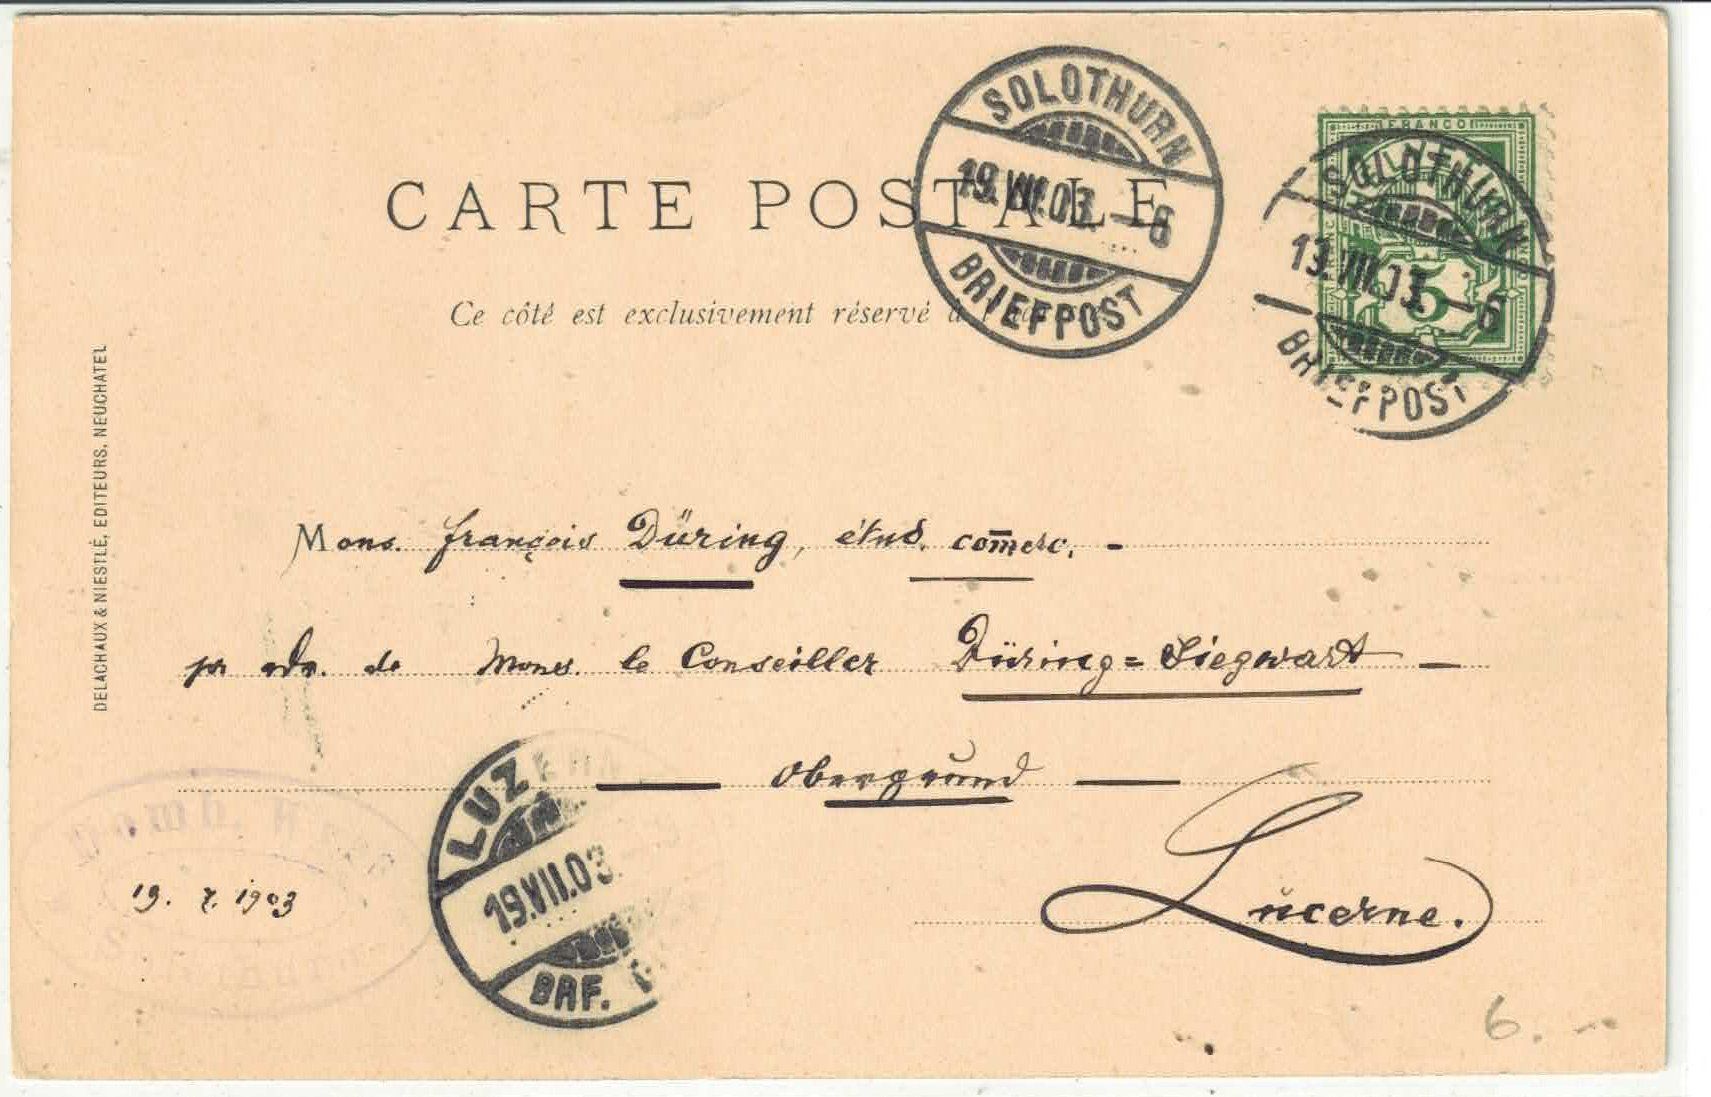 SOLOTHURN
19.VII.03. – 6
BRIEFPOST
FRANCO
5
SOLOTHURN
VII.03. – 6
BRIEFPOST
CARTE POSTALE
Ce côté est exclusivement réservé à
DELACHAUX & NIESTLÉ, EDITEURS, NEUCHATEL
Mons. François Düring, étud. com̅erc. -
pr adr. de Mons. le Conseiller Düring=Siegwart —
— Obergrund —
Lucerne.
LUZERN
19.VII.03.
BRF.
19. 7. 1903
6. -